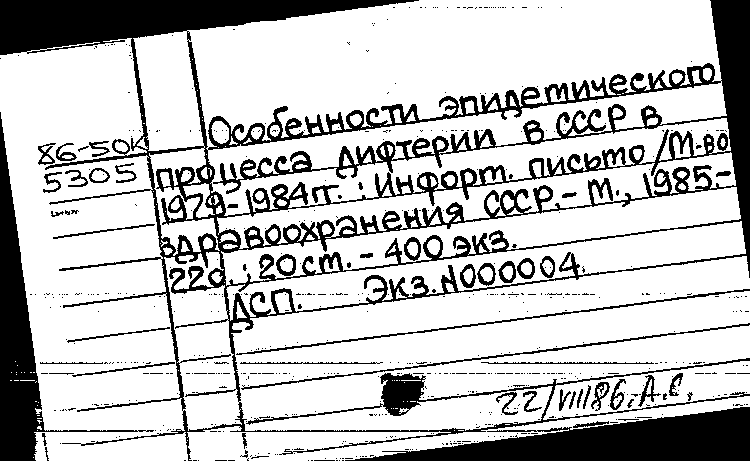 86-50К
5305
Особенности эпидетического
процесса дифтерии в СССР в
1979-1984гг. : Информ. письмо / М-во
здравоохранения СССР. - М., 1985.-
22с. ; 20 см. - 400 экз.
ДСП. Экз. N000004.
22/VIII86. А.С.